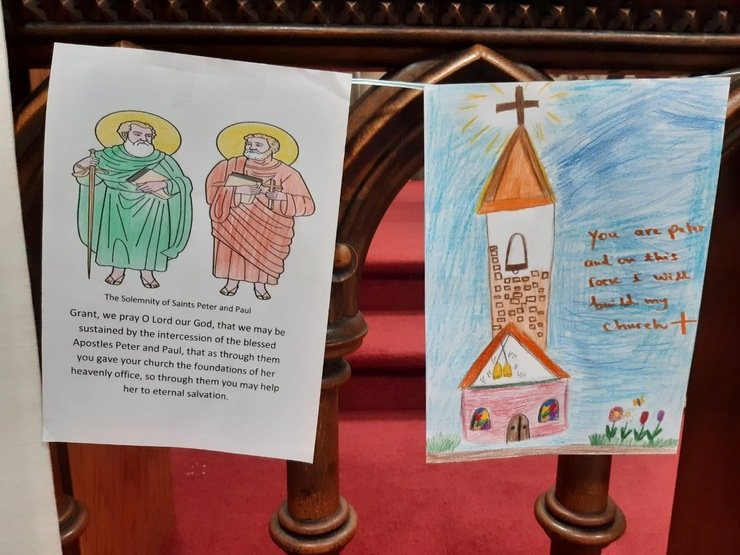 The Solemnity of Saints Peter and Paul
Grant, we pray O Lord our God, that we may be
sustained by the intercession of the blessed
Apostles Peter and Paul, that as through them
you gave your church the foundations of her
heavenly office, so through them you may help
her to eternal salvation.
You are Peter
and on this
rock I will
build my
church